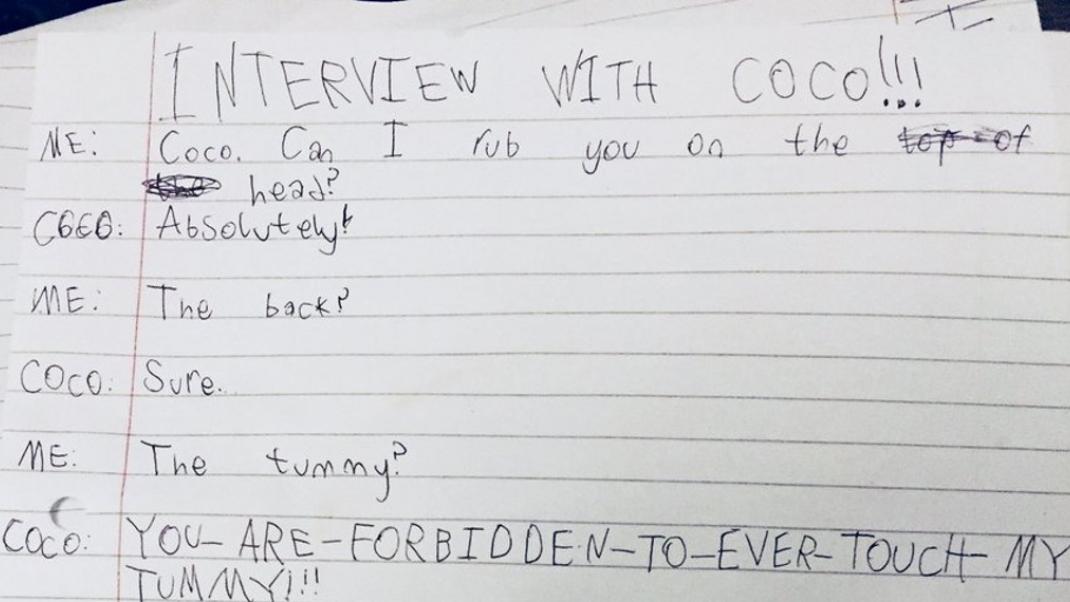 INTERVIEW WITH COCO!!!
ME: Coco. Can I rub you on the top of
the head?
COCO: Absolutely!
ME: The back?
COCO: Sure.
ME: The tummy?
COCO: YOU-ARE-FORBIDDEN-TO-EVER-TOUCH-MY
TUMMY!!!